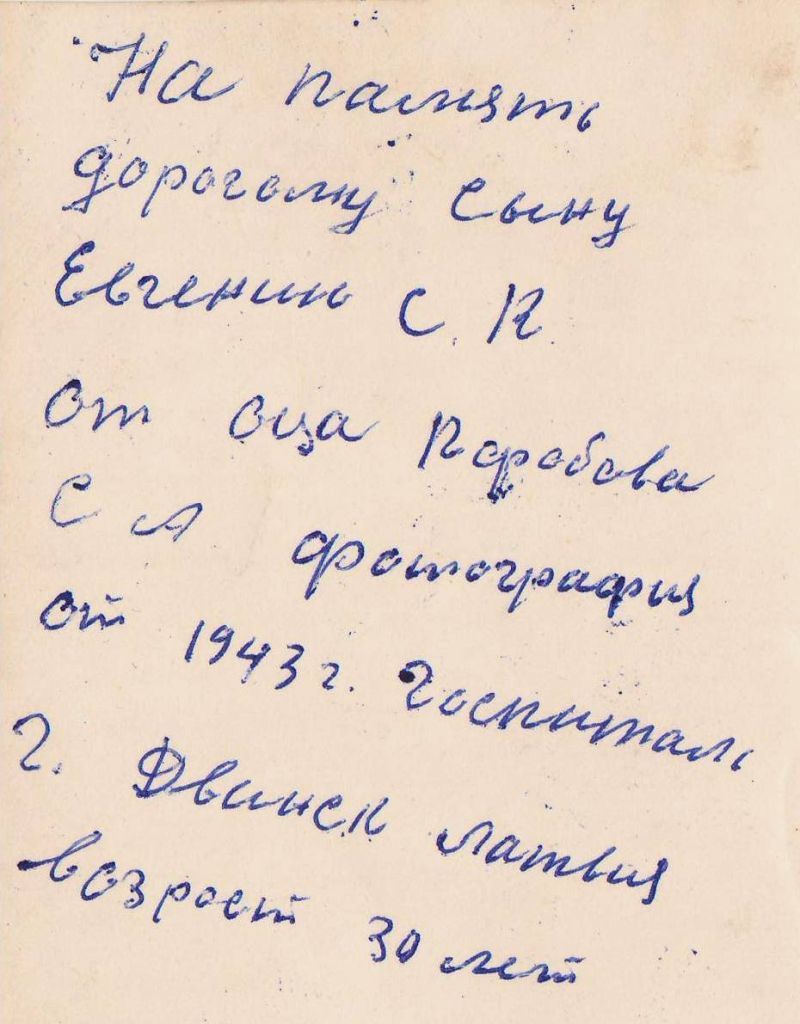 На память
дорогому сыну
Евгению С. К.
от оца Коробова
С А фотография
от 1943 г. Госпиталь
г. Двинск Латвия
возраст 30 лет